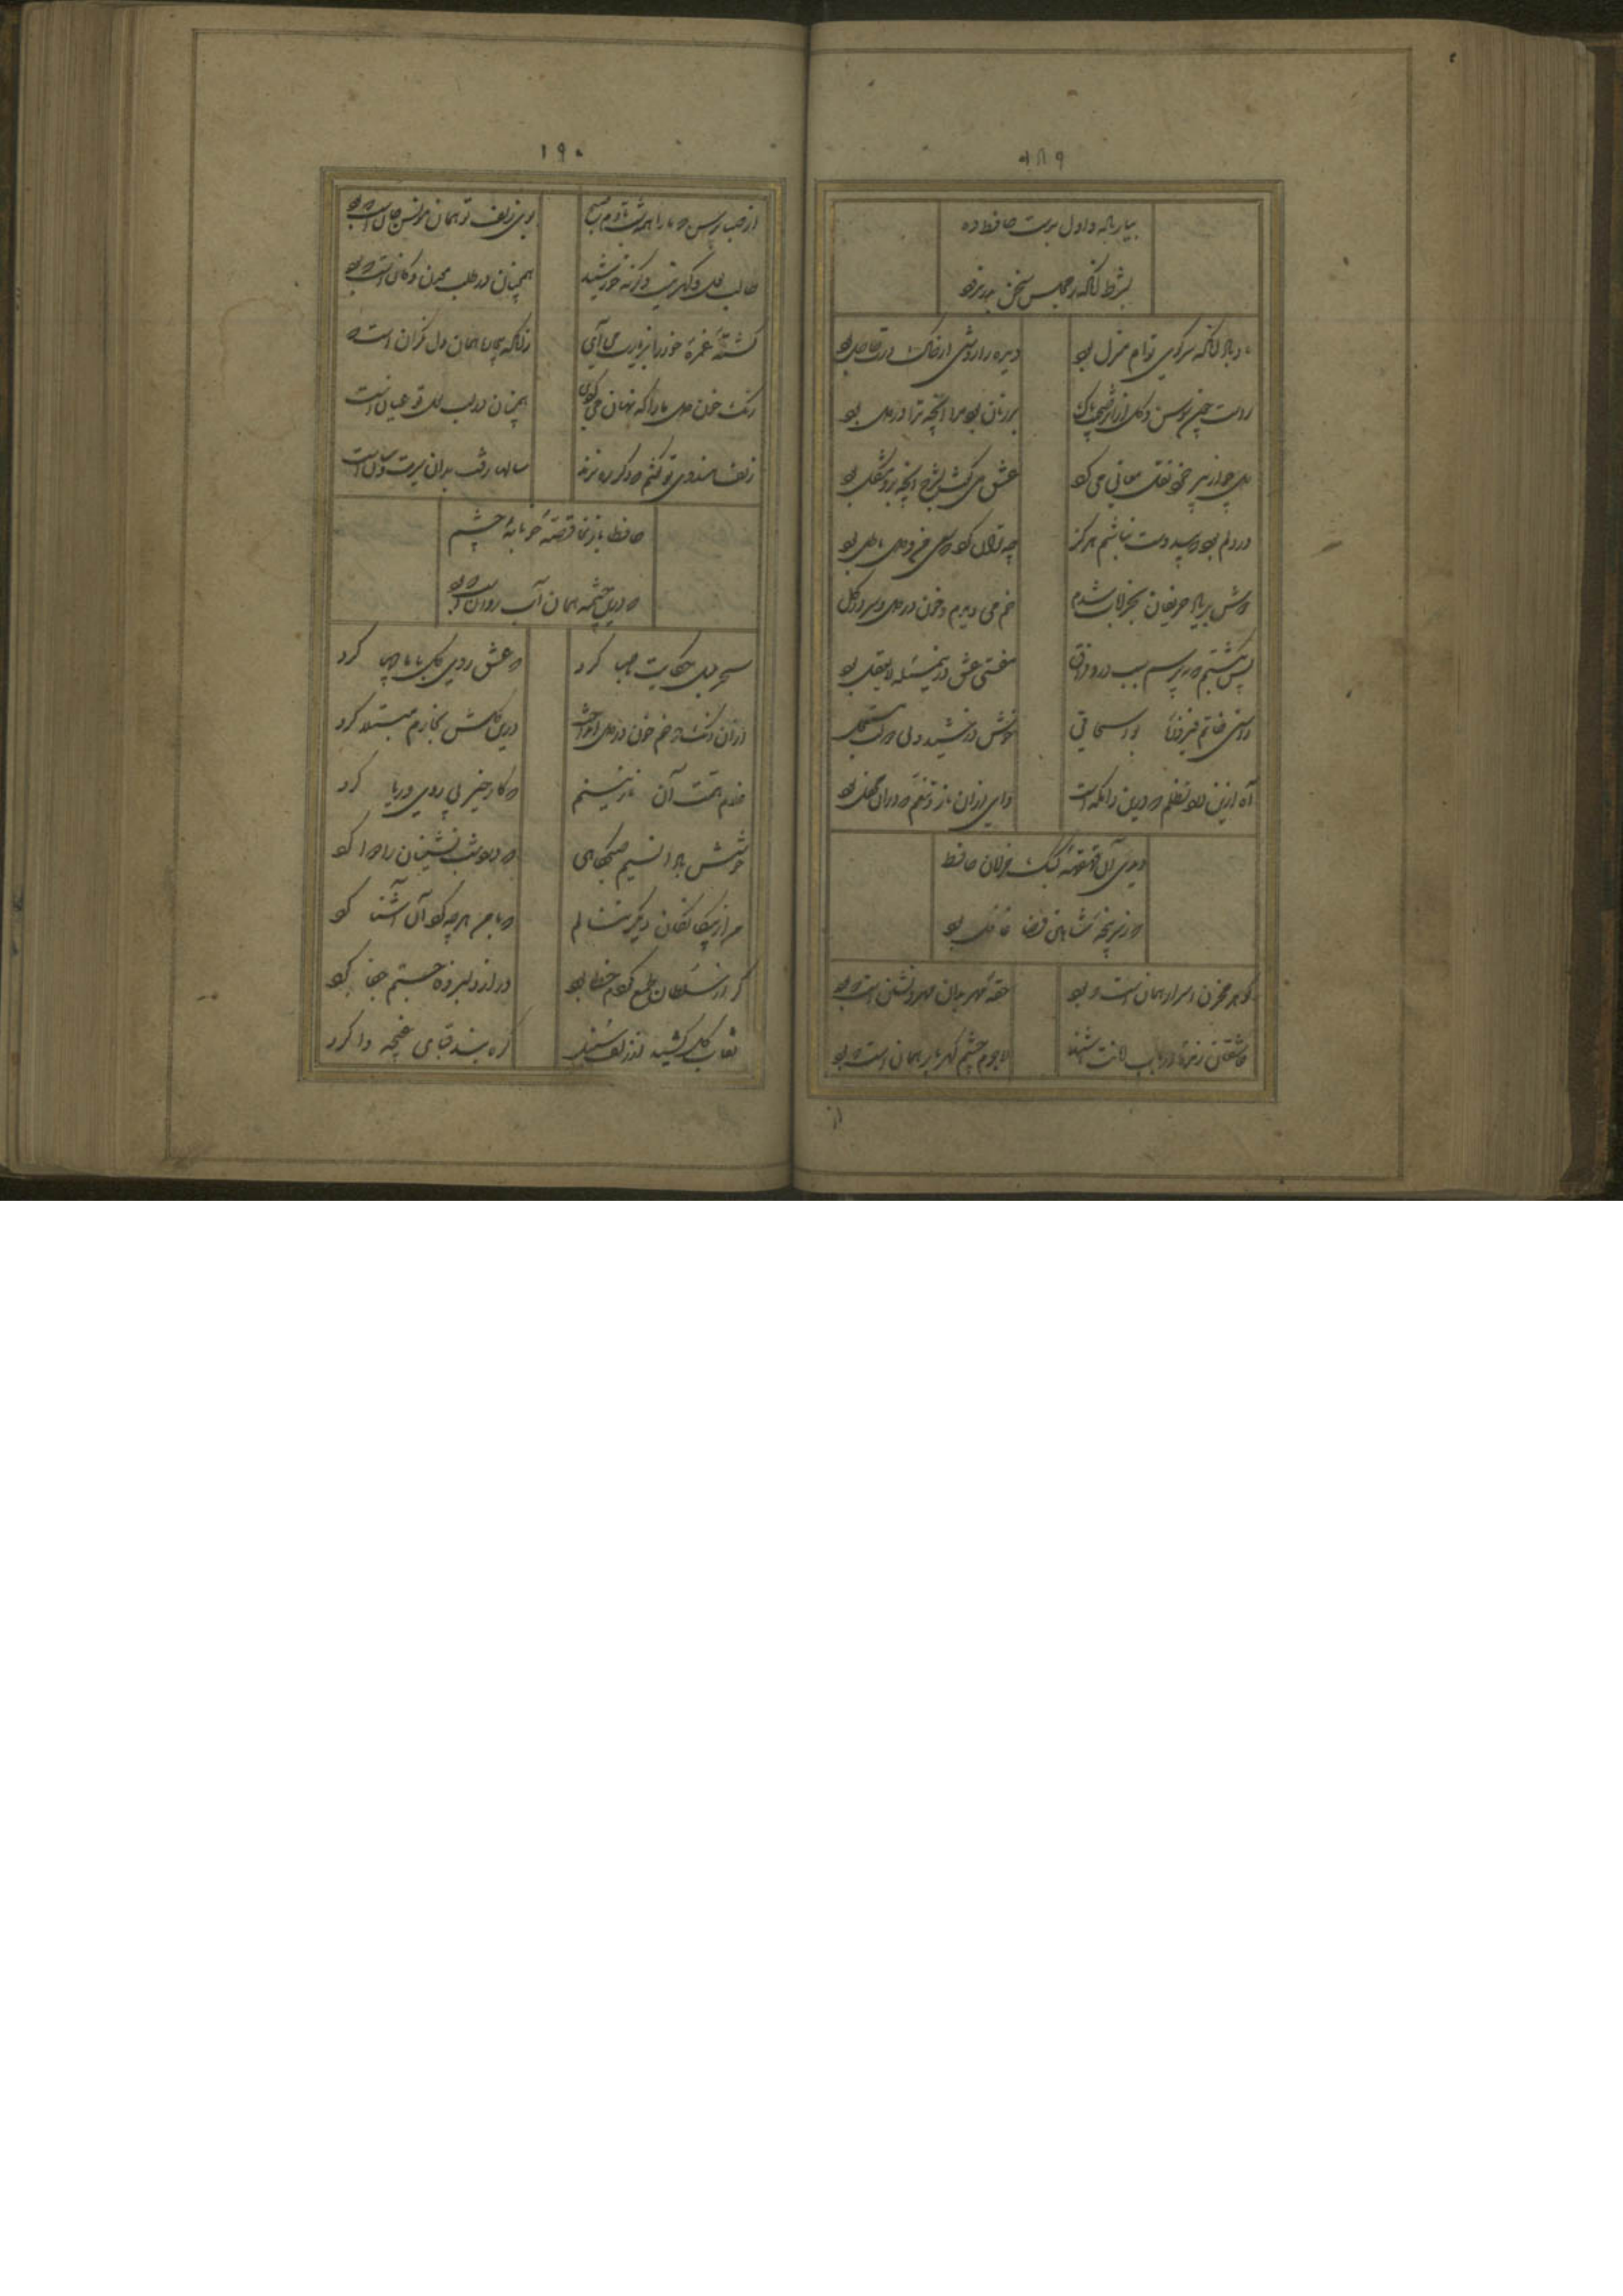 ۱۸۹
بیار باده و اول بدست حافظ ده
بشرط آنکه ز مجلس سخن بدر نرود
یاد باد آنکه سر کوی توام منزل بود
دیده را روشنی از خاک درت حاصل بود
راست چون سوسن و گل از اثر صحبت پاک
بر زبان بود مرا آنچه ترا در دل بود
دل چو از پیر خرد نقل معانی می کرد
عشق می گفت بشرح آنچه برو مشکل بود
در دلم بود که بی دوست نباشم هرگز
چه توان کرد که سعی من و دل باطل بود
دوش بر یاد حریفان بخرابات شدم
خم می دیدم و خون در دل و سر در گل
بس بگشتم که بپرسم سبب درد فراق
مفتی عشق درین مسئله لا یعقل بود
راستی خاتم فیروزه بو اسحاقی
خوش درخشید ولی دولت مستعجل
آه ازین جور و تظلم که درین دامگه است
وای ازان ناز و تنعم که دران محفل بود
دیدی آن قهقهه کبک خرامان حافظ
که ز سر پنجه شاهین قضا غافل بود
گوهر مخزن اسرار همان است که بود
حقه مهر بدان مهر و نشان است که بود
عاشقان زمره ارباب امانت باشند
لاجرم چشم گهر بار همان است که بود
از
۱۹۰
از صبا پرس که ما را همه شب تا دم صبح
بوی زلف تو همان مونس جان است که بود
طالب لعل و گهر نیست وگرنه خورشید
همچنان در طلب معدن و کان است که بود
کشته غمزه خود را بزیارت می آی
زانکه بیچاره همان دل نگران است که
رنگ خون دل ما را که نهان می کردی
همچنان در لب لعل تو عیان است
زلف هندوی تو گفتم که دگر ره نزند
سالها رفت بدان سیرت و سان است
حافظ باز نما قصه خونابه چشم
که درین چشمه همان آب روان است که بود
سحر بلبل حکایت با صبا کرد
که عشق روی گل با ما چها کرد
ازان رنگ رخم خون در دل انداخت
درین گلشن بخارم مبتلا کرد
غلام همت آن نازنینم
که کار خیر بی روی و ریا کرد
خوشش باد آن نسیم صبحگاهی
که درد شب نشینان را دوا کرد
من از بیگانگان دیگر ننالم
که با من هر چه کرد آن آشنا کرد
گر از سلطان طمع کردم خطا بود
ور از دلبر وفا جستم جفا کرد
نقاب گل کشید و زلف سنبل
گره بند قبای غنچه وا کرد